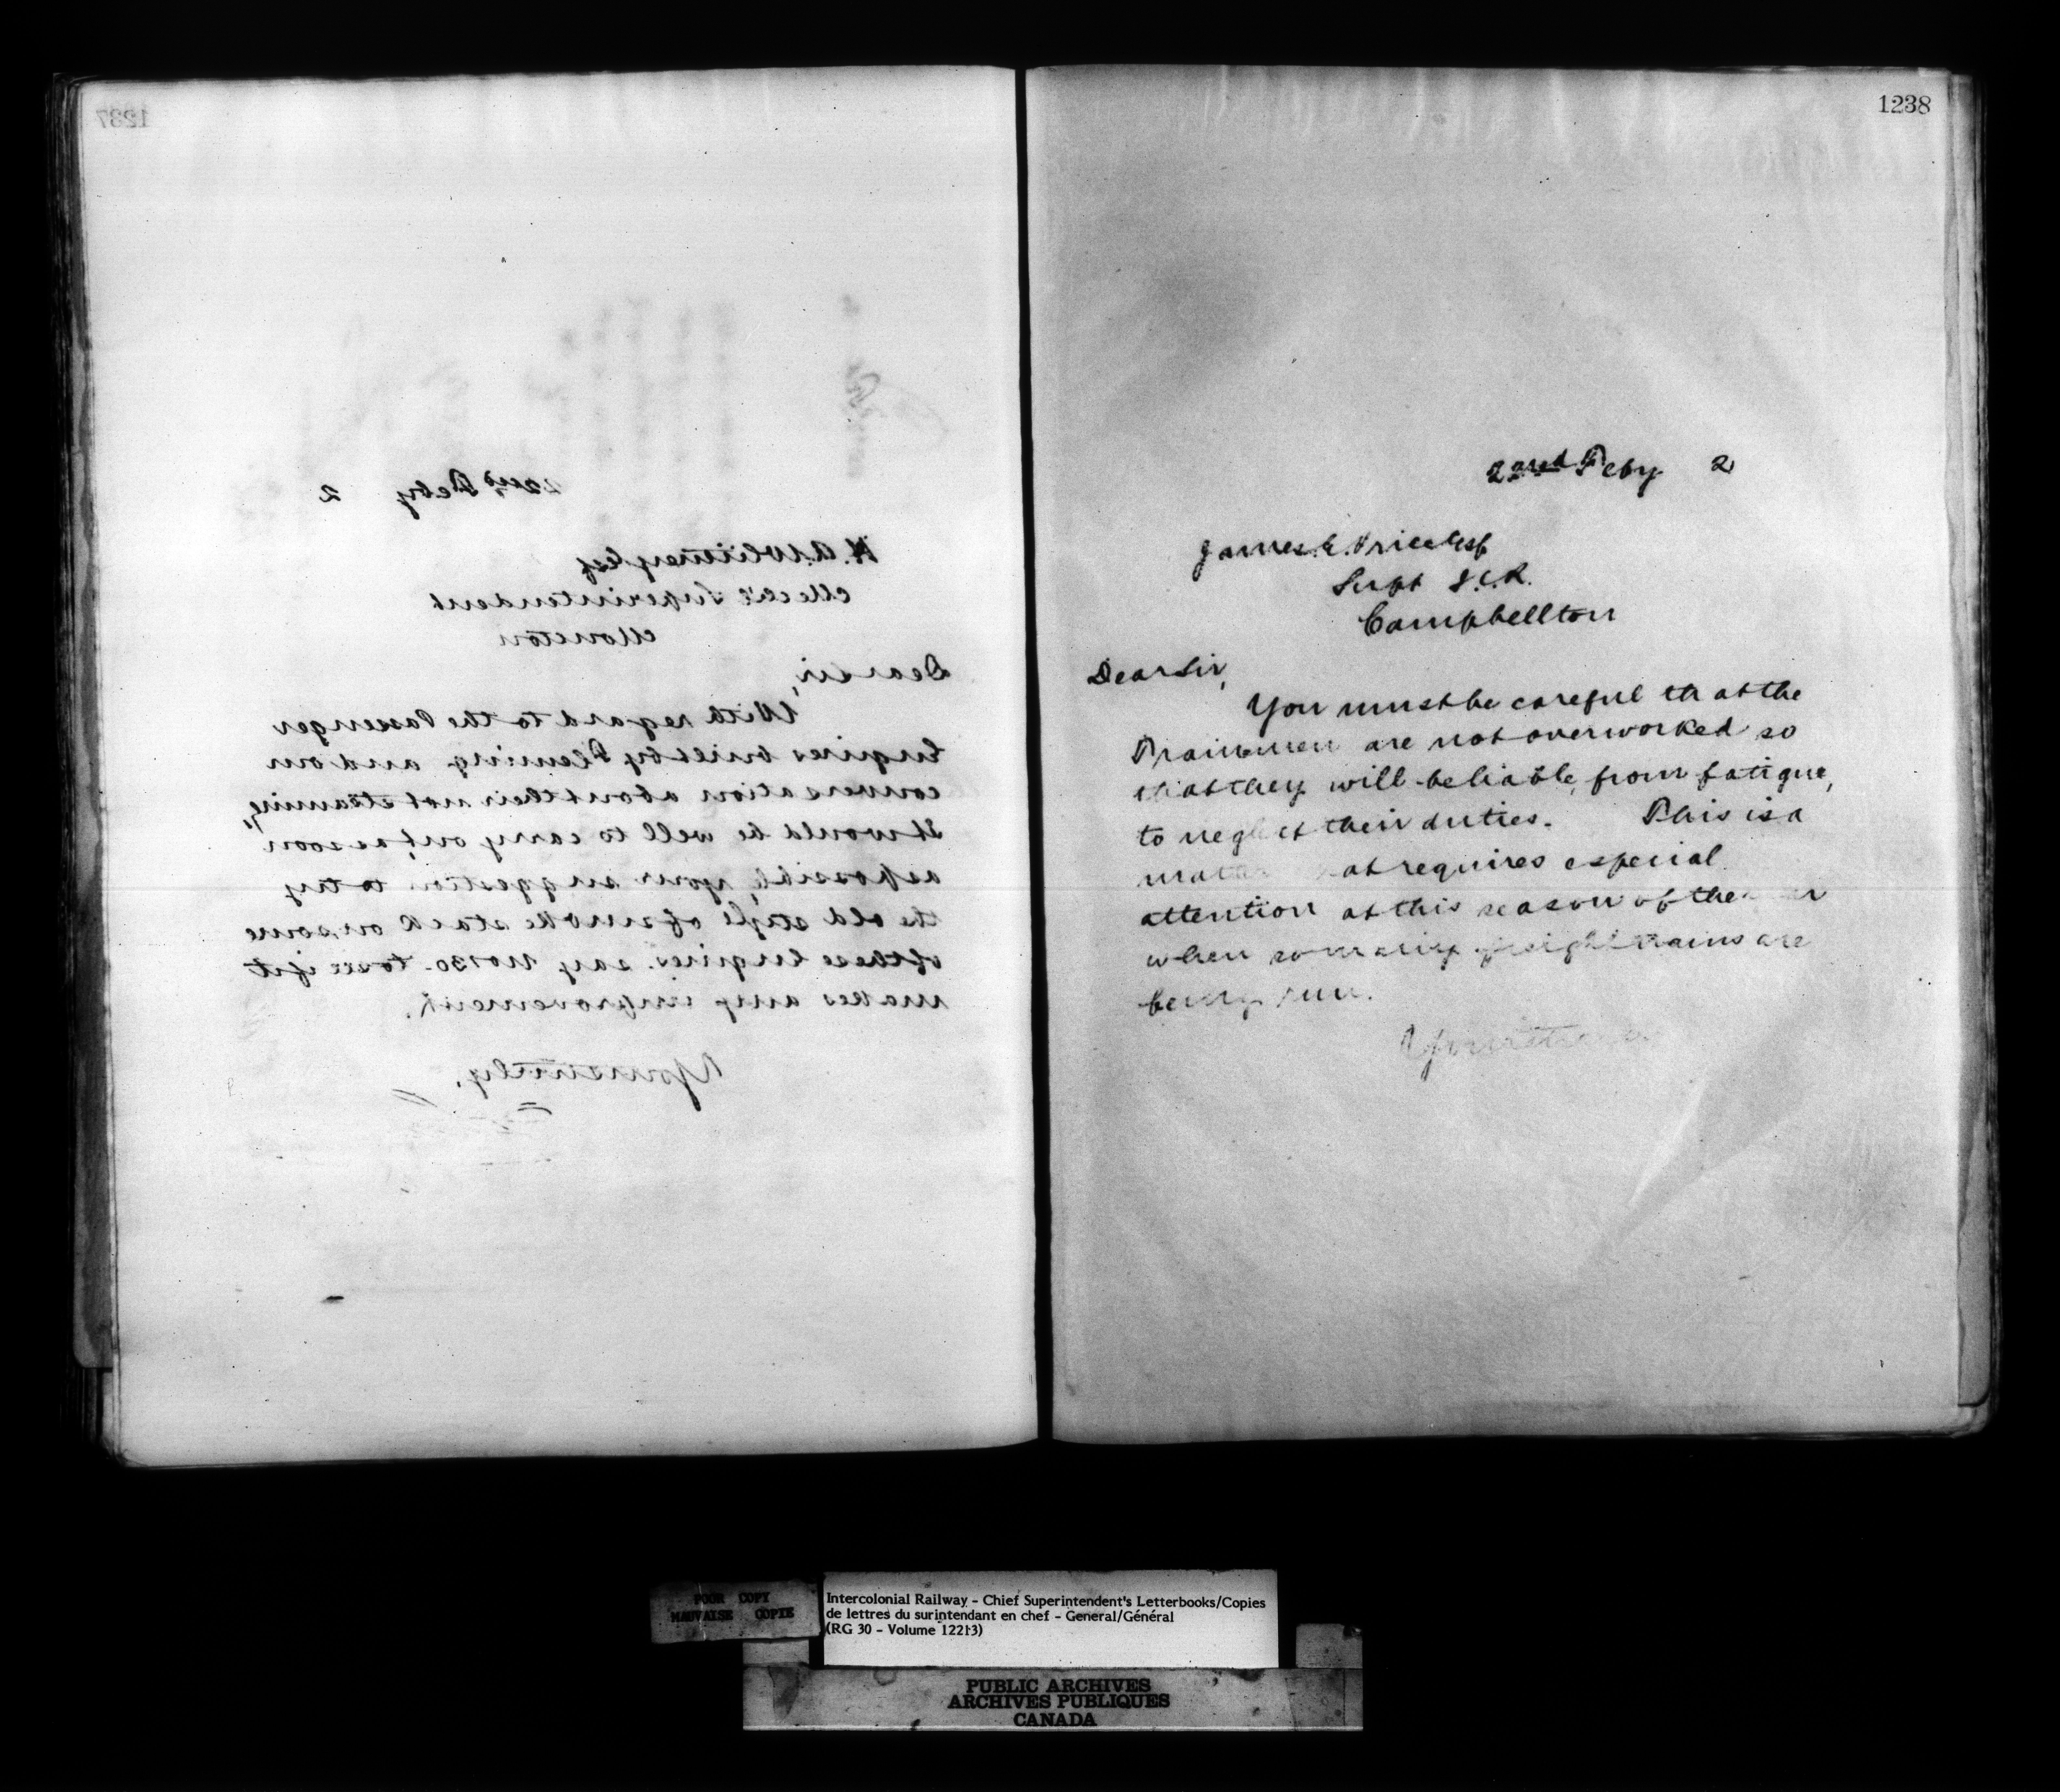 1237
22nd Feby 2
H. A. Whitney Esq
Mech'l Superintendent
Moncton
Dear Sir,
With regard to the Passenger
Engines built by Fleming and our
conversation about their not steaming,
it would be well to carry out, as soon
as possible, your suggestion to try
the old style of smoke stack on some
of these Engines. say No 130. to see if it
makes any improvement.
Yours truly,
1238
22nd Feby 2
James E. Price Esq
Supt I.C.R.
Campbellton
Dear Sir,
You must be careful that the
Trainmen are not overworked so
that they will be liable, from fatigue,
to neglect their duties. This is a
matter that requires especial
attention at this season of the
when so many freight trains are
being run.
Yours truly
POOR COPY
MAUVAISE COPIE
Intercolonial Railway - Chief Superintendent's Letterbooks/Copies
de lettres du surintendant en chef - General/Général
(RG 30 - Volume 12213)
PUBLIC ARCHIVES
ARCHIVES PUBLIQUES
CANADA